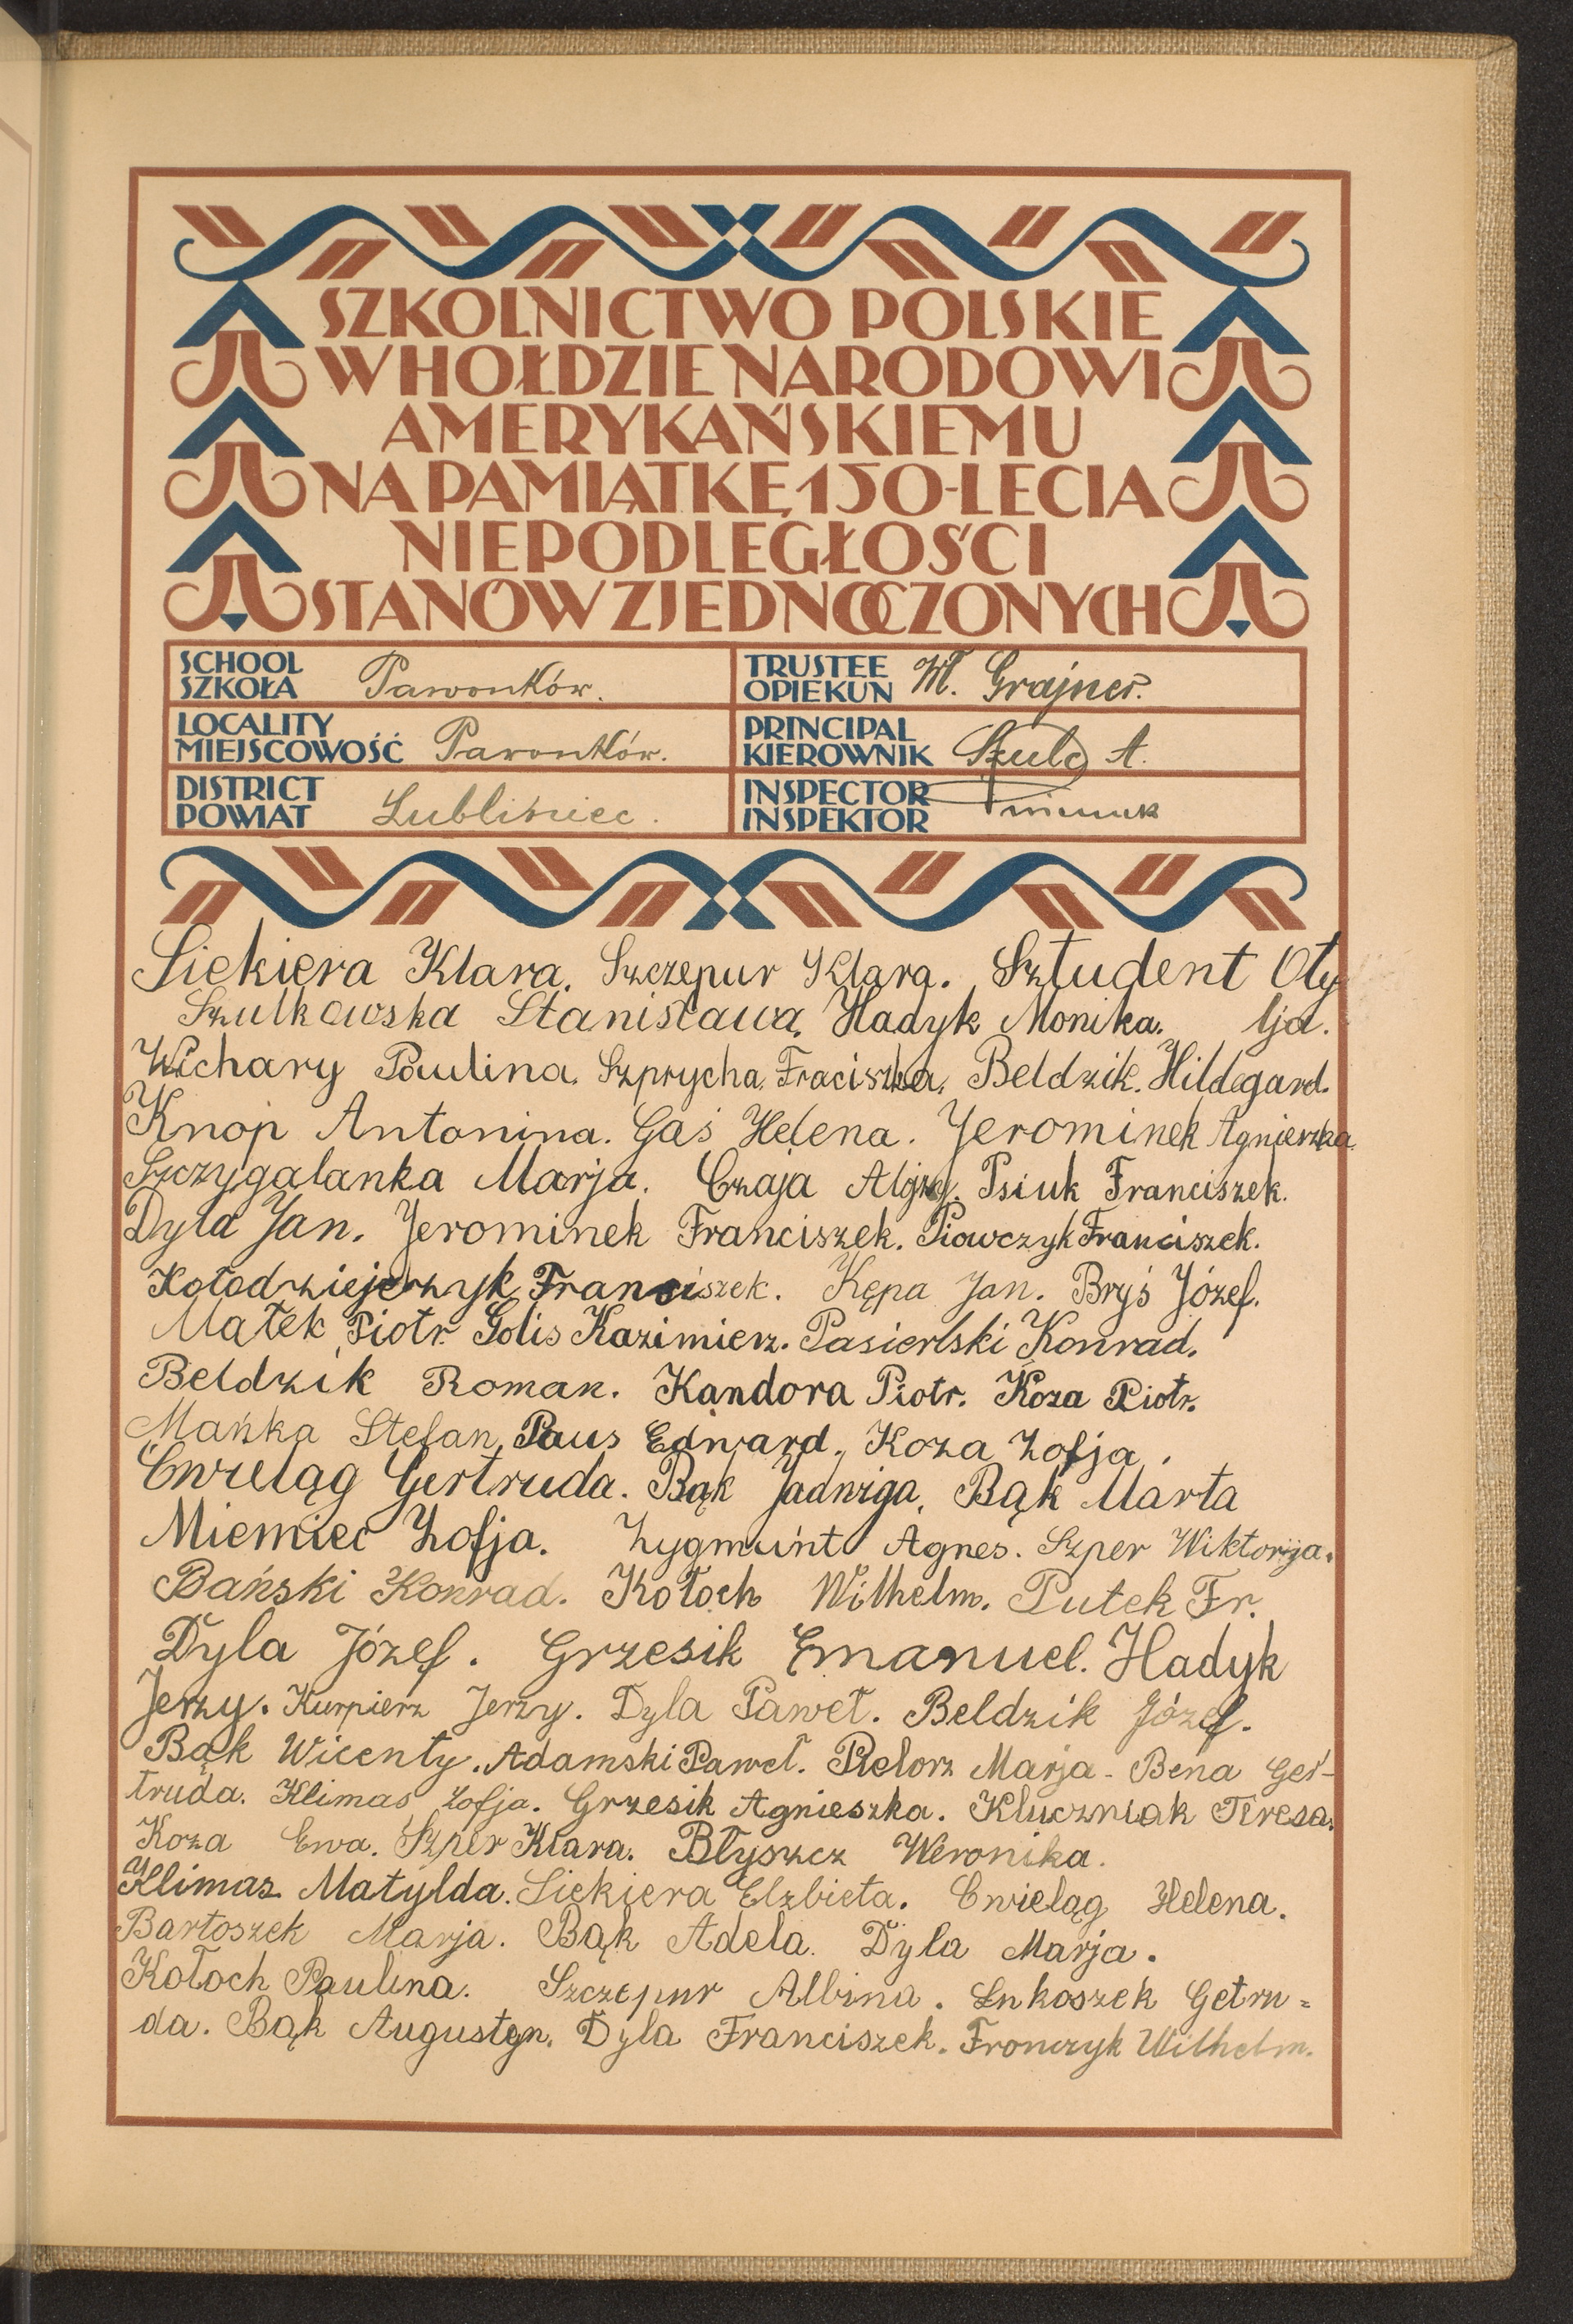 SZKOLNICTWO POLSKIE
W HOŁDZIE NARODOWI
AMERYKAŃSKIEMU
NA PAMIĄTKĘ 150-LECIA
NIEPODLEGŁOŚCI
STANÓW ZJEDNOCZONYCH
SCHOOL
SZKOŁA Pawonków.
TRUSTEE
OPIEKUN W. Grajner.
LOCALITY
MIEJSCOWOŚĆ Pawonków.
PRINCIPAL
KIEROWNIK Szulc A.
DISTRICT
POWIAT Lubliniec.
INSPECTOR
INSPEKTOR
Siekiera Klara. Szczepur Klara. Sztudent Oty
Szulkowska Stanisława, Hadyk Monika. lja.
Wichary Paulina. Szprycha Fraciszka, Beldzik. Hildegard.
Knop Antonina. Gaś Helena. Jerominek Agnieszka
Szczygalanka Marja. Czaja Psiuk Franciszek.
Dyla Jan. Jerominek Franciszek. Piowczyk Franciszek.
Kołodziejczyk Franciszek. Kępa Jan. Bryś Józef.
Małek Piotr. Golis Kazimierz. Pasierbski Konrad.
Beldzik Roman. Kandora Piotr. Koza Piotr.
Mańka Stefan, Paus Edward., Koza Zofja.
Cwieląg Gertruda. Bąk Jadwiga, Bąk Marta
Miemiec Zofja. Zygmunt Agnes. Szper Wiktorja.
Bański Konrad. Kołoch Wilhelm. Putek Fr.
Dyla Józef. Grzesik Emanuel. Hadyk
Jerzy. Kurpierz Jerzy. Dyla Paweł. Beldzik Józef.
Bąk Wicenty. Adamski Paweł. Relorz Marja - Bena Ger-
truda. Klimas Zofja. Grzesik Agnieszka. Kluczniak Teresa.
Koza Ewa. Szper Klara. Błyszcz Weronika.
Klimas Matylda. Siekiera Elzbieta. Cwieląg Helena.
Bartoszek Marja. Bąk Adela. Dyla Marja.
Kołoch Paulina. Szczepur Albina. Lukoszek Getru=
da. Bąk Augustyn. Dyla Franciszek. Fronczyk Wilhelm.